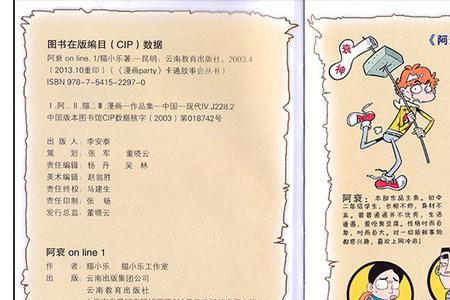 图书在版编目（CIP）数据
阿衰 on line. 1/猫小乐著.—昆明：云南教育出版社，2003.4
（2013.10重印）（《漫画party》卡通故事会丛书）
ISBN 978-7-5415-2297-0
Ⅰ.阿… Ⅱ.猫… Ⅲ.漫画—作品集—中国—现代Ⅳ.J228.2
中国版本图书馆CIP数据核字（2003）第018742号
出版人：李安泰
策划：张军 董晓云
责任编辑：杨丹 吴林
美术编辑：赵翁胜
责任终校：马建生
责任印制：张旸
发行总监：董晓云
阿衰 on line 1
作者：猫小乐 猫小乐工作室
出版：云南出版集团公司
云南教育出版社
《阿
衰神
阿衰：本部作品主角。初中
二年级学生，长相不帅，身材不
高。普普通通并不优秀，生活
邋遢，爱吃臭豆腐。性格时而自
卑，时而自大。对一切新鲜事物
都感兴趣，喜欢上网冲浪！